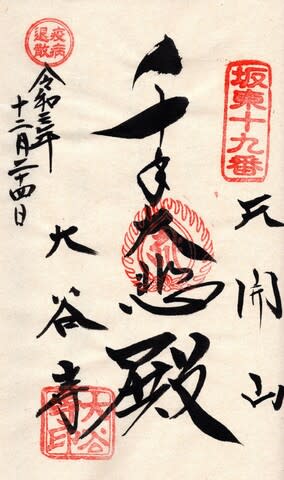 坂東十九番
天開山
千手大悲殿
大谷寺
大谷寺印
疫病退散
令和三年
十二月二十四日